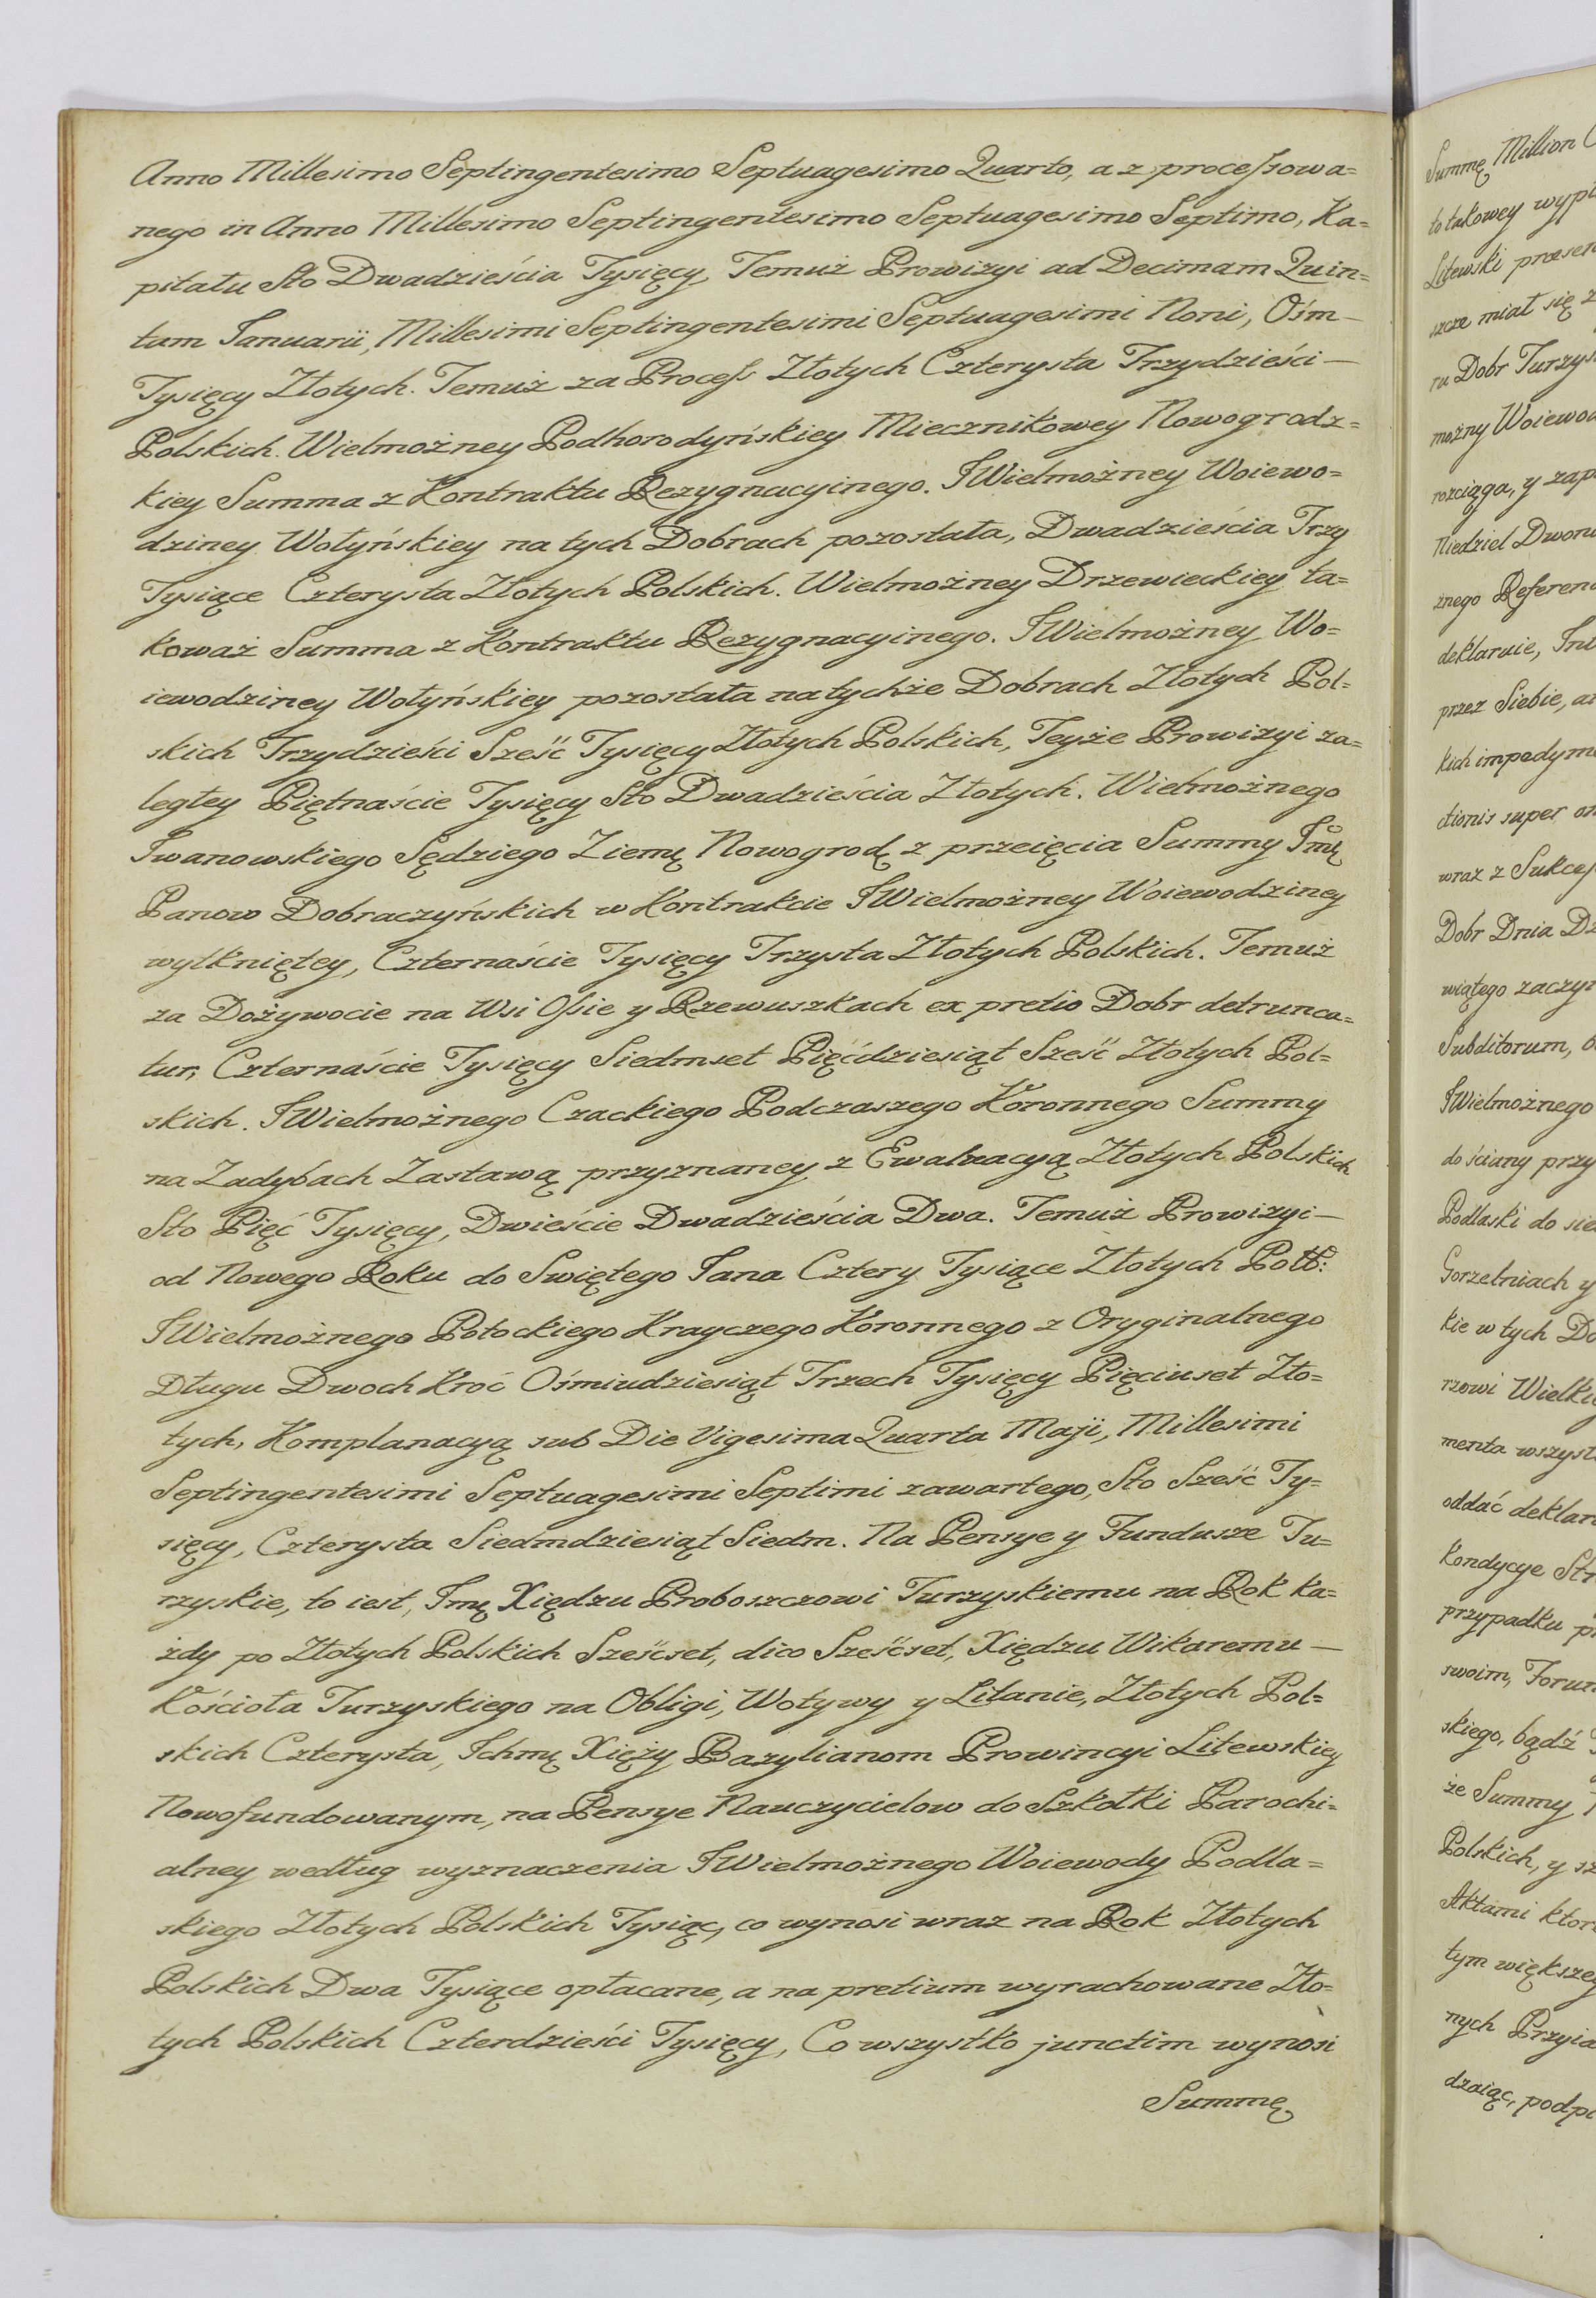 Anno Millesimo Septingentesimo Septuagesimo Quarto, a z processowa=
nego in Anno Millesimo Septingentesimo Septuagesimo Septimo, Ka=
pitału Sto Dwadzieścia Tysięcy, Temuż Prowizyi ad Decimam Quin=
tum Januarii, Millesimi Septingentesimi Septuagesimi Noni, Ośm —
Tysięcy Złotych. Temuż za Process Złotych Czterysta Trzydzieści —
Polskich. Wielmożney Podhorodyńskiey Miecznikowey Nowogrodz=
kiey Summa z Kontraktu Rezygnacyinego. JWielmożney Woiewo=
dziney Wołyńskiey na tych Dobrach pozostała, Dwadzieścia Trzy
Tysiące Czterysta Złotych Polskich. Wielmożney Drzewieckiey ta=
koważ Summa z Kontraktu Rezygnacyinego. JWielmożney Wo=
iewodziney Wołyńskiey pozostała na tychże Dobrach Złotych Pol=
skich Trzydzieści Sześć Tysięcy Złotych Polskich, Teyże Prowizyi za=
ległey Piętnaście Tysięcy Sto Dwadzieścia Złotych. Wielmożnego
Iwanowskiego Sędziego Ziemę Nowogrodę z przeięcia Summy Jmę
Panow Dobraczyńskich w Kontrakcie JWielmożney Woiewodziney
wytkniętey, Czternaście Tysięcy Trzysta Złotych Polskich. Temuż
za Dożywocie na Wsi Ossie y Rzewuszkach ex pretio Dobr detrunca=
tur, Czternaście Tysięcy Siedmset Pięćdziesiąt Sześć Złotych Pol=
skich. JWielmożnego Czackiego Podczaszego Koronnego Summy
na Zadybach Zastawą przyznaney z Ewaluacyą Złotych Polskich
Sto Pięć Tysięcy, Dwieście Dwadzieścia Dwa. Temuż Prowizyi —
od Nowego Roku do Swiętego Jana Cztery Tysiące Złotych Pol:
JWielmożnego Potockiego Krayczego Koronnego z Oryginalnego
Długu Dwoch Kroć Ośmiudziesiąt Trzech Tysięcy Pięciuset Zło=
tych, Komplanacyą sub Die Vigesima Quarta Maji, Millesimi
Septingentesimi Septuagesimi Septimi zawartego, Sto Sześć Ty=
sięcy, Czterysta Siedmdziesiąt Siedm. Na Pensye y Fundusze Tu=
rzyskie, to iest, Jmę Xiędzu Proboszczowi Turzyskiemu na Rok ka=
żdy po Złotych Polskich Sześćset, dico Sześćset, Xiędzu Wikaremu —
Kościoła Turzyskiego na Obligi, Wotywy y Litanie, Złotych Pol=
skich Czterysta, Ichmę Xięży Bazylianom Prowincyi Litewskiey
Nowofundowanym, na Pensye Nauczycielow do Szkołki Parochi=
alney według wyznaczenia JWielmożnego Woiewody Podla=
skiego Złotych Polskich Tysiąc, co wynosi wraz na Rok Złotych
Polskich Dwa Tysiące opłacane, a na pretium wyrachowane Zło=
tych Polskich Czterdzieści Tysięcy, Co wszystko junctim wynosi
Summę
Summę Million
to takowey
Litewski
szcze miał się z
ru Dobr
możny
rozciąga, y
Niedziel
żnego
deklaruie,
przez Siebie,
kich
ctionis super
wraz z
Dobr Dnia
wiątego
Subditorum,
JWielmożnego
do ściany
Podlaski do
Gorzelniach y
kie w tych
rzowi
menta
oddać
Kondycye
przypadku
swoim,
skiego, bądź
że Summy
Polskich, y
Aktami
tym
nych
dzaiąc,